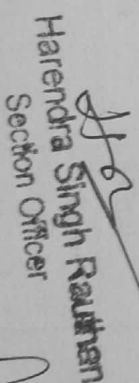 Harendra Singh Rauthan
Section Officer